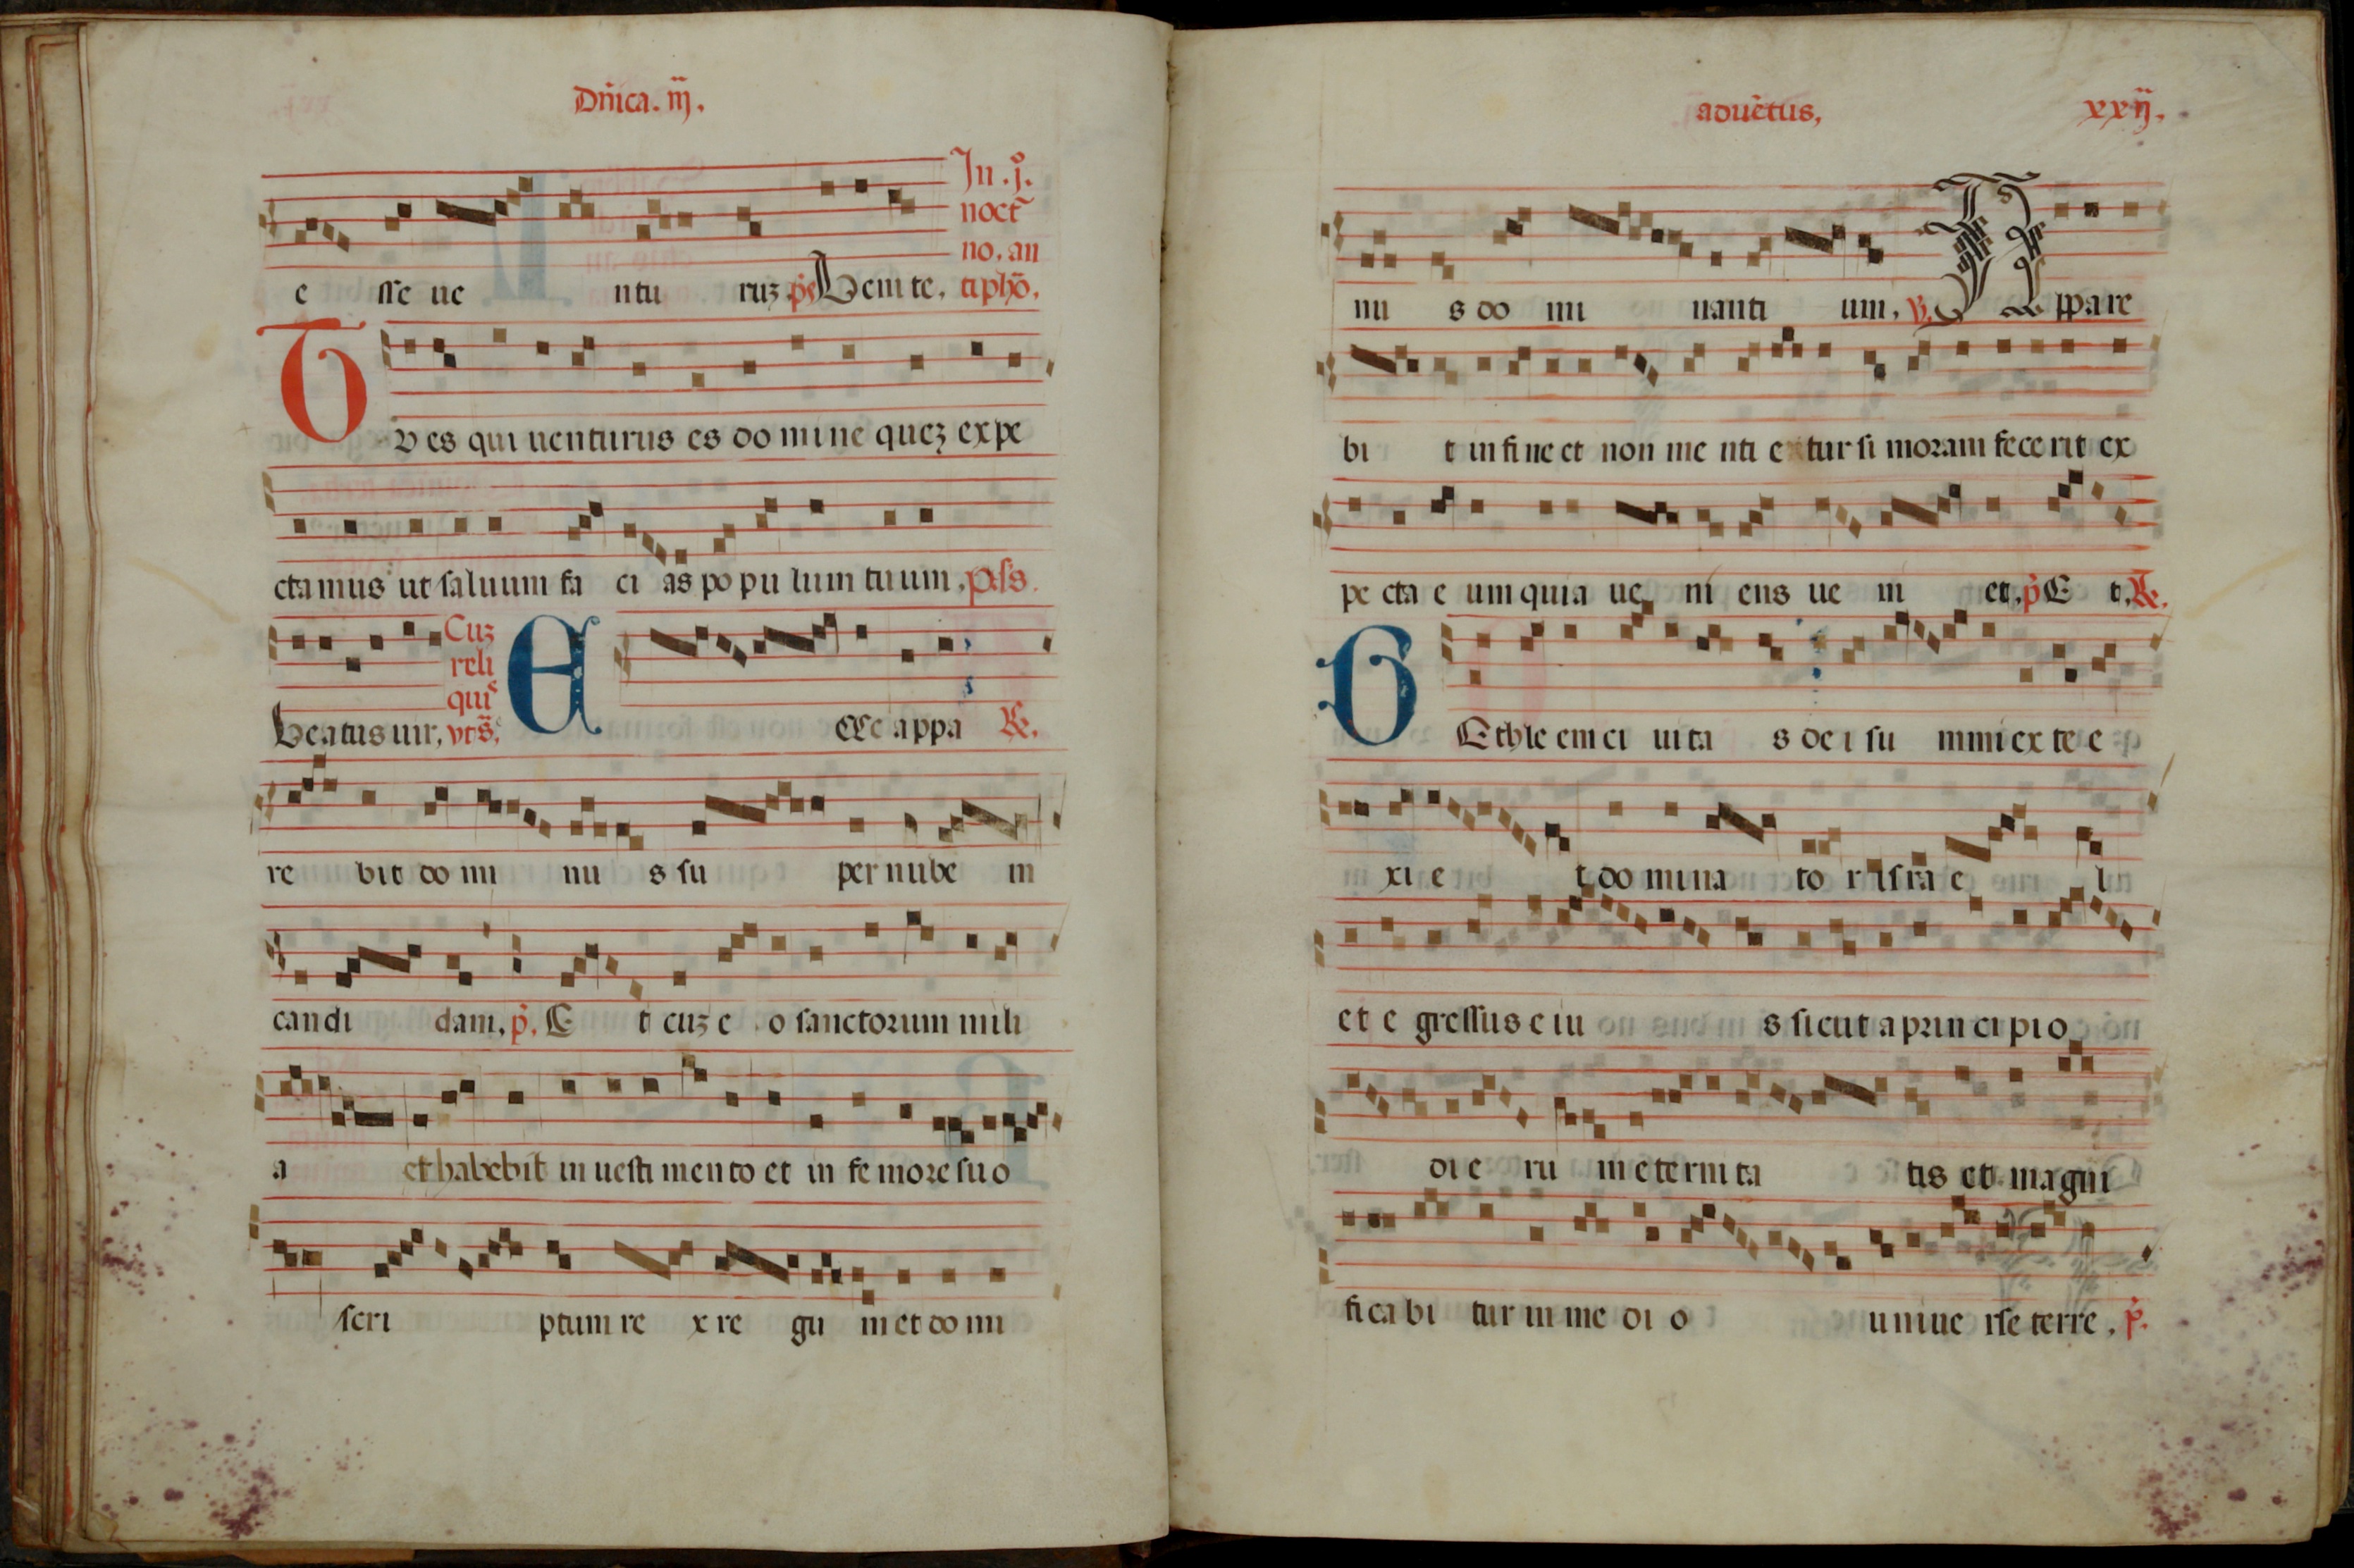 Dñica. iij.
In. j.º
noct̃
no. an
e sse ue ntu ruʒ. p̃s Venite. tiphõ.
T v es qui uenturus es do mi ne queʒ expe
cta mus ut saluum fa ci as po pu lum tuum. ps̃.
Cuʒ
reli
quis
Beatus uir, vts̃. E CCe appa R̃.
re bit do mi nu s su per nube m
candi dam. p̃. E t cuʒ e o sanctorum mili
a et habebit in uesti mento et in fe more suo
scri ptum re x re gu m et do mi
aduẽtus, xxij.
nu s do mi nanti um. v. A ppare
bi t in fi ne et non me nti e tur si moram fece rit ex
pe cta e um quia ue ni ens ue ni et. p̃ E t. R̃.
B Ethle em ci uita s de i su mmi ex te e
xi e t do mina to r isra e l
et e gressus e iu s sicut a prin ci pi o
di e ru m eterni ta tis et magni
fi ca bi tur in me di o uniue rse terre. p̃.